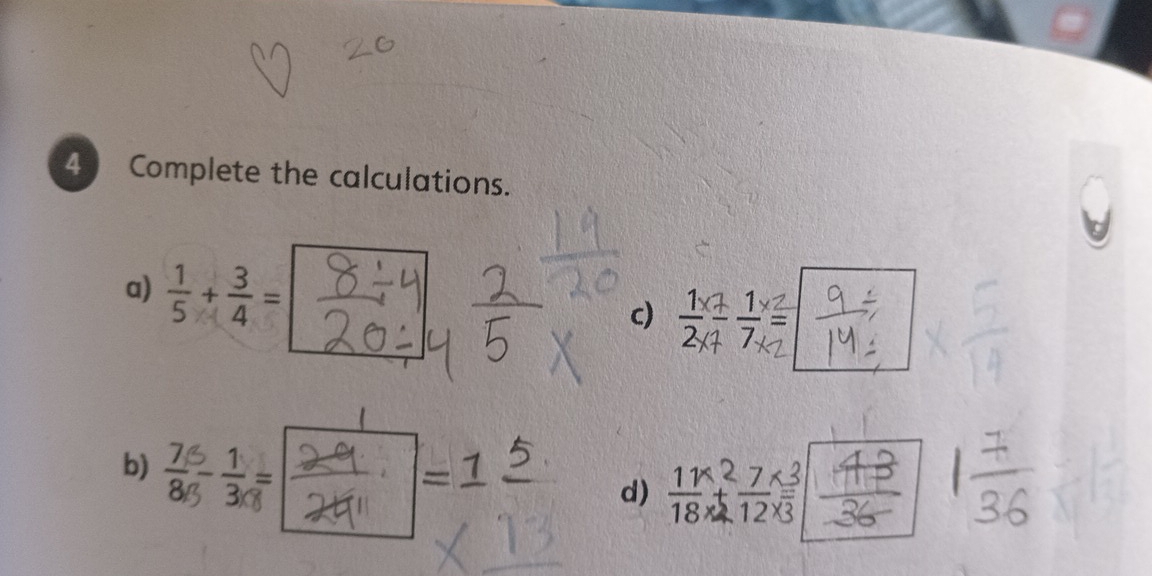 ♡ 20
4 Complete the calculations.
a) 1/5 + 3/4 = 8÷4/20÷4 2/5 19/20 X
c) 1×7/2×7 − 1×2/7×2 = 9÷/14÷ × 5/14
b) 7/8 − 1/3×8 = 29/24 = 1 5 X 13
d) 11×2/18×2 + 7×3/12×3 = 43/36 1 7/36